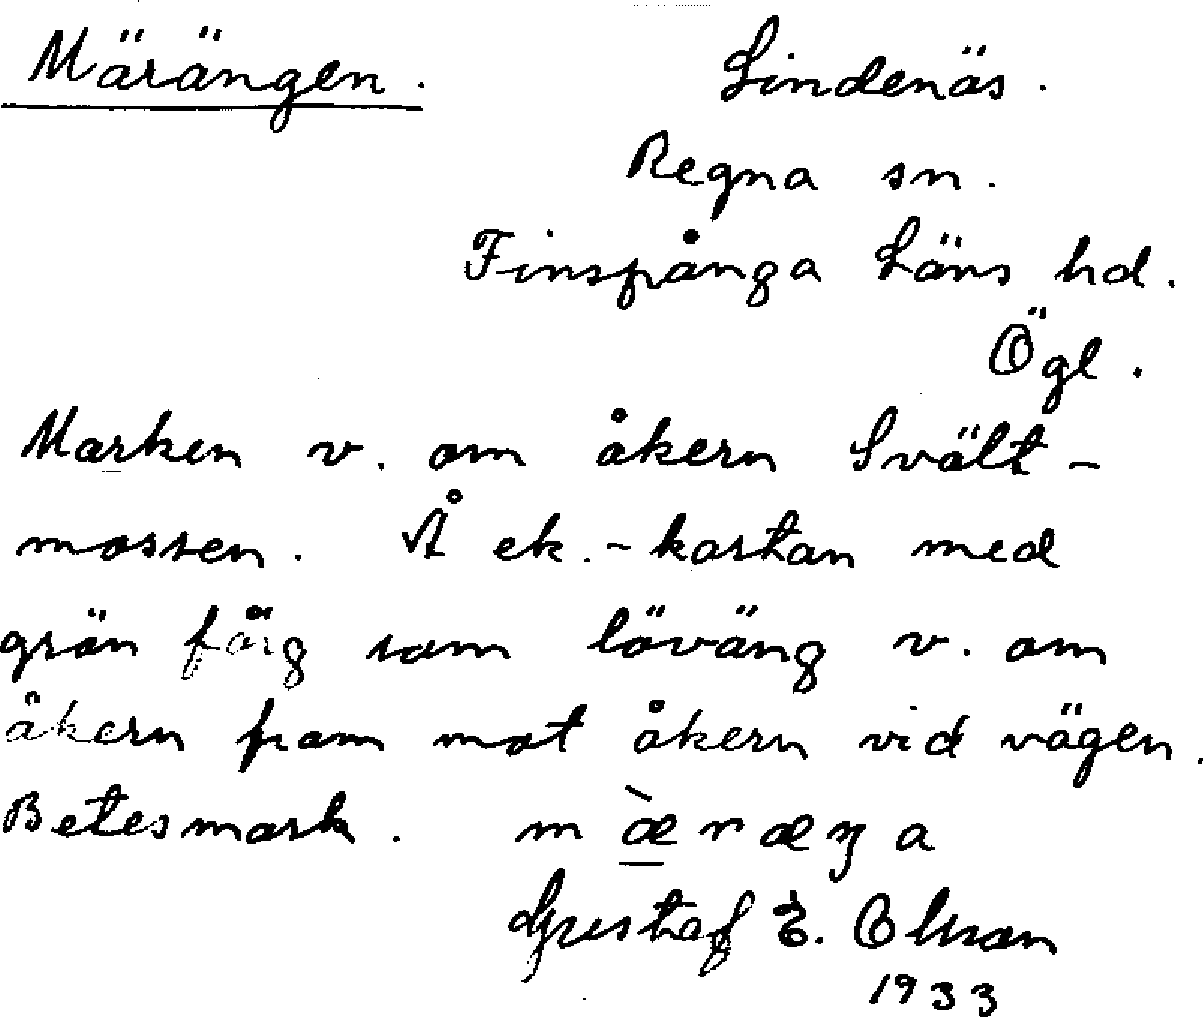 Märängen. Lindenäs.
Regna sn.
Finspånga Läns hd.
Ögl.
Marken v. om åkern Svält-
mossen. Å ek.-kartan med
grön färg som löväng v. om
åkern fram mot åkern vid vägen.
Betesmark. m æ̀ r æ ŋ a
Gustaf E. Olsson
1933